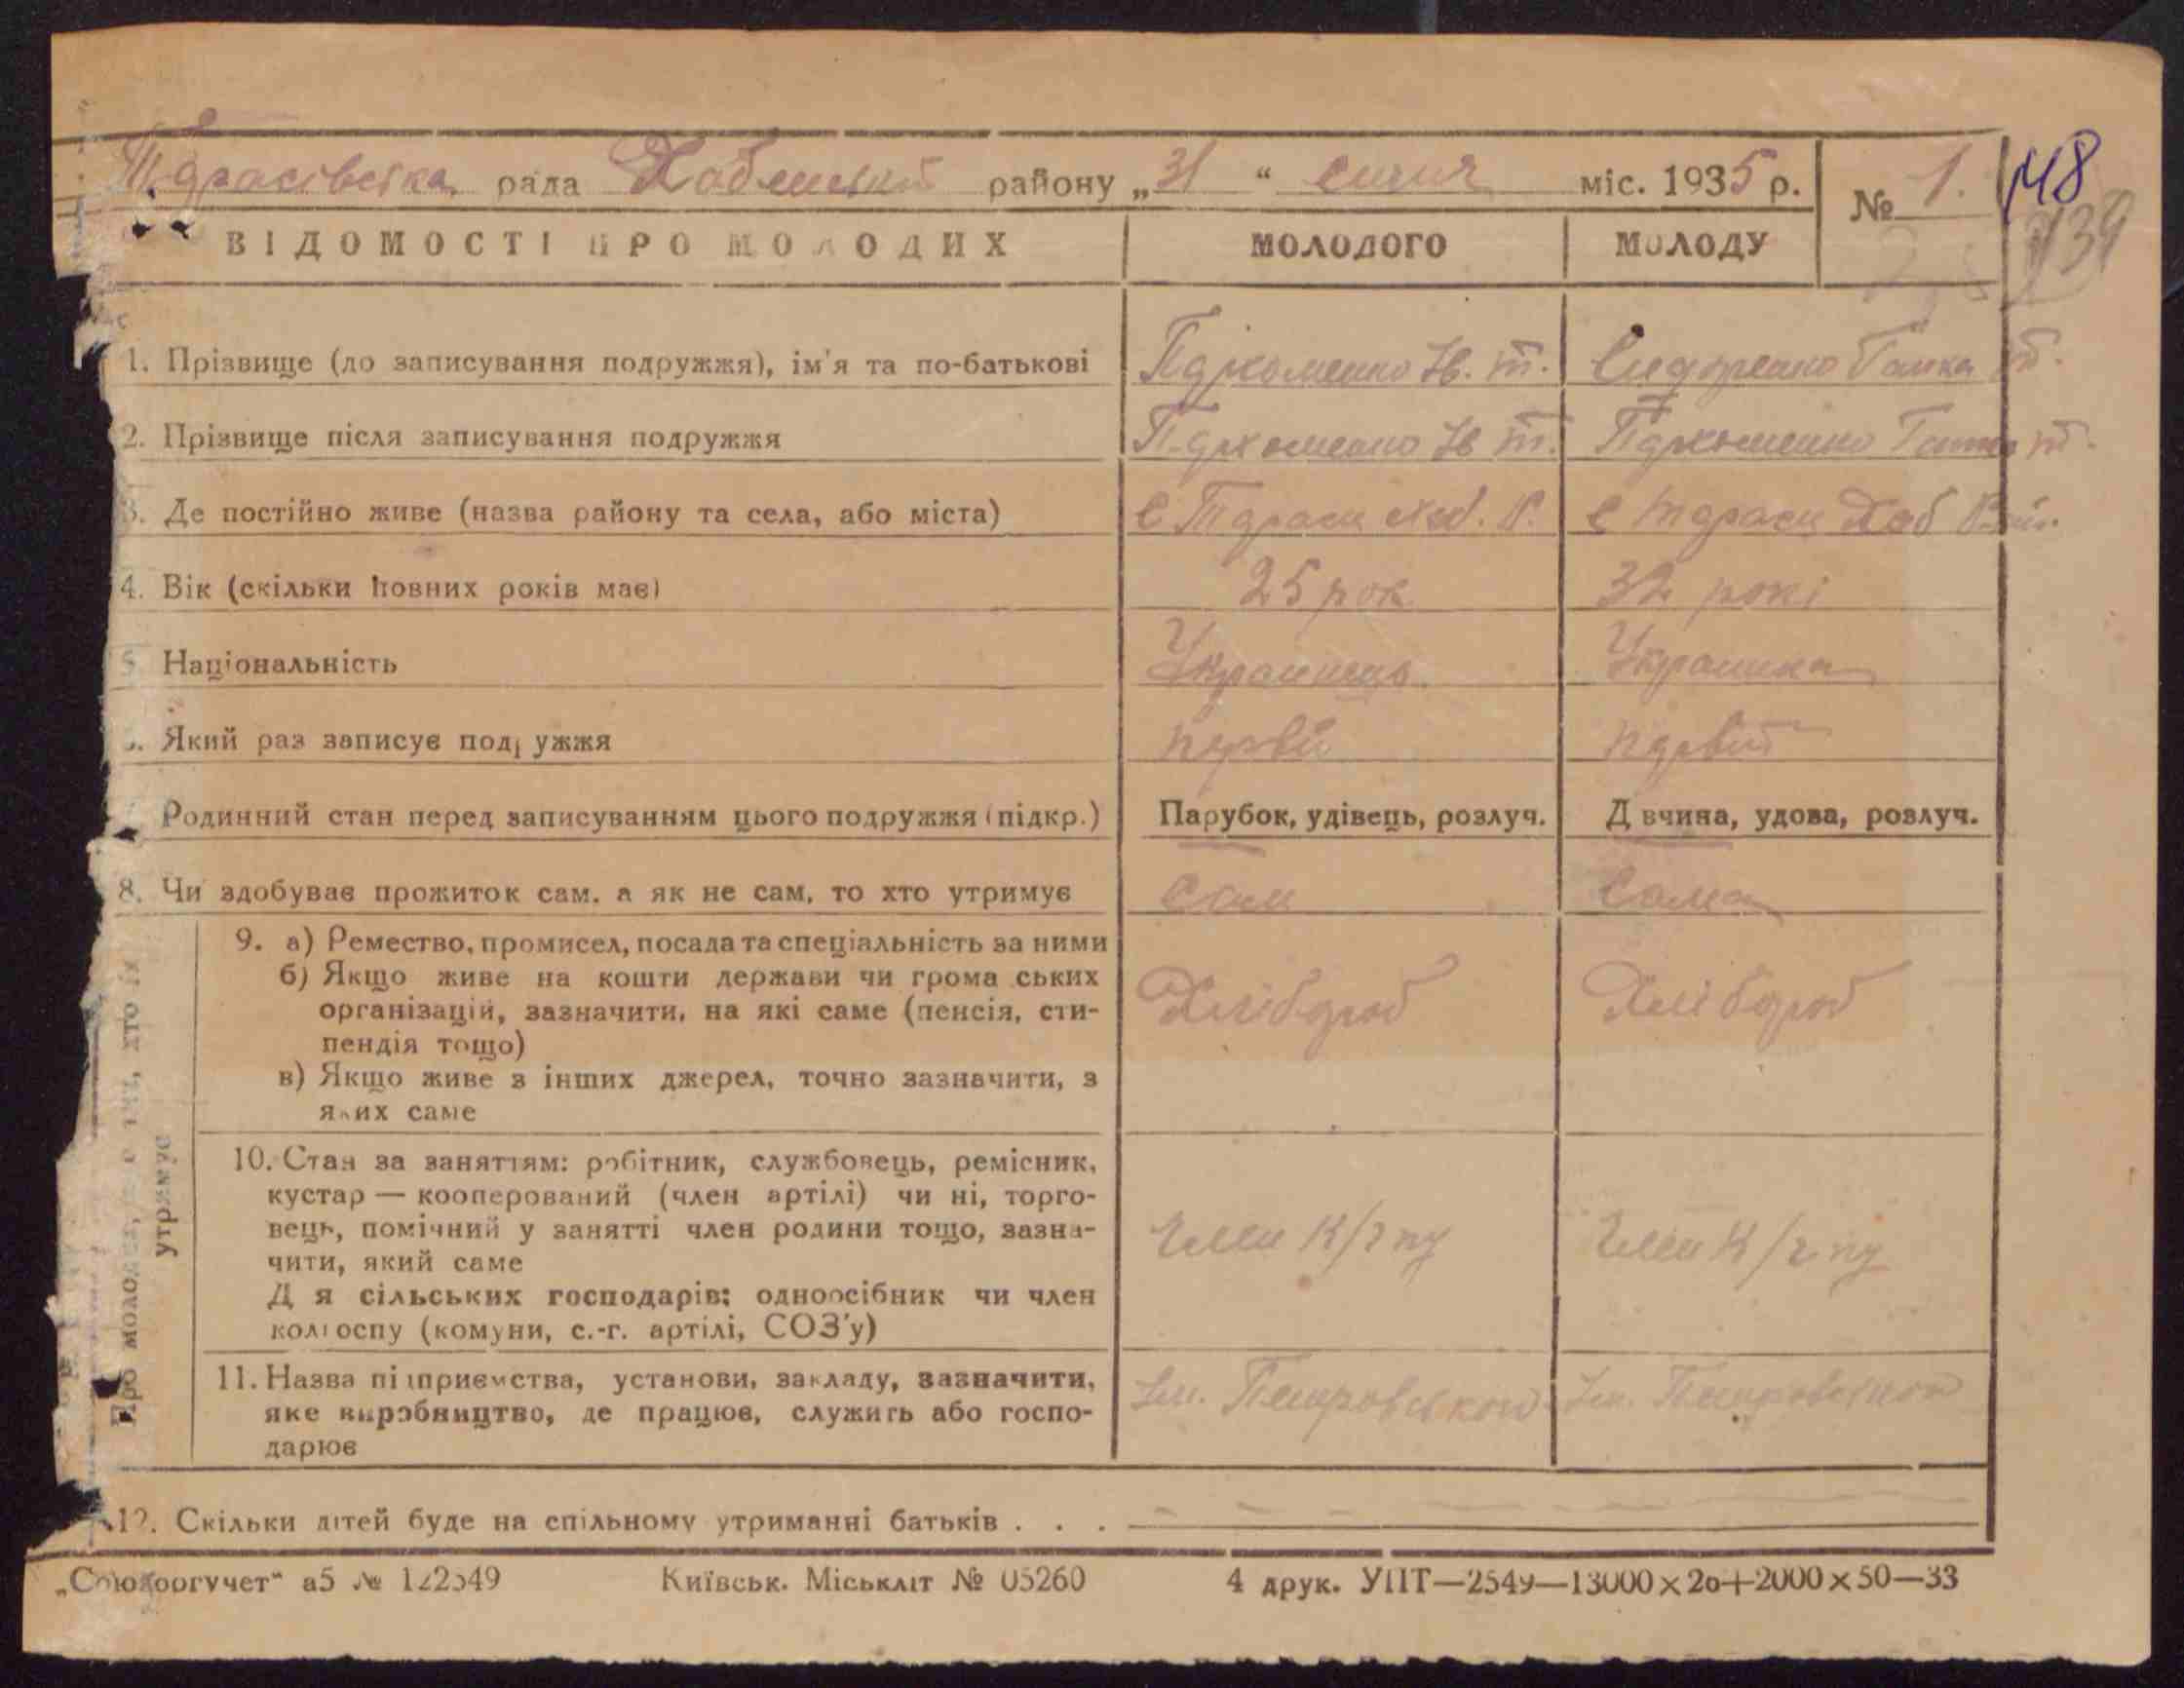 Тарасівська рада Хабенський району „31“ січня міс. 1935 р. № 1. 148
139
ВІДОМОСТІ ПРО МОЛОДИХ МОЛОДОГО МОЛОДУ
1. Прізвище (до записування подружжя), ім'я та по-батькові Пархоменко Ів. Т. Сидоренко Ганка Т.
2. Прізвище після записування подружжя Пархоменко Ів Т. Пархоменко Ганка Т.
3. Де постійно живе (назва району та села, або міста) С Тараси Хаб. Р. С Тараси Хаб Рай.
4. Вік (скільки повних років має) 25 рок 32 рокі
5. Національність Українець Українка
6. Який раз записує подружжя первий первий
7. Родинний стан перед записуванням цього подружжя (підкр.) Парубок, удівець, розлуч. Дівчина, удова, розлуч.
8. Чи здобуває прожиток сам, а як не сам, то хто утримує Сам Сама
Про молодих, а тих, хто їх утримує
9. а) Ремество, промисел, посада та спеціальність за ними
б) Якщо живе на кошти держави чи громадських
організацій, зазначити, на які саме (пенсія, сти-
пендія тощо)
в) Якщо живе з інших джерел, точно зазначити, з
яких саме
Хлібороб Хлібороб
10. Стан за заняттям: робітник, службовець, ремісник,
кустар — кооперований (член артілі) чи ні, торго-
вець, помічний у занятті член родини тощо, зазна-
чити, який саме
Для сільських господарів: одноосібник чи член
колгоспу (комуни, с.-г. артілі, СОЗ'у)
Член К/г пу Член К/г пу
11. Назва підприємства, установи, закладу, зазначити,
яке виробництво, де працює, служить або госпо-
дарює
Ім. Петровського Ім. Петровського
12. Скільки дітей буде на спільному утриманні батьків . . . — — —
„Союзоргучет“ а5 № 122549 Київськ. Міськліт № 05260 4 друк. УПТ—2549—13000×20+2000×50—33